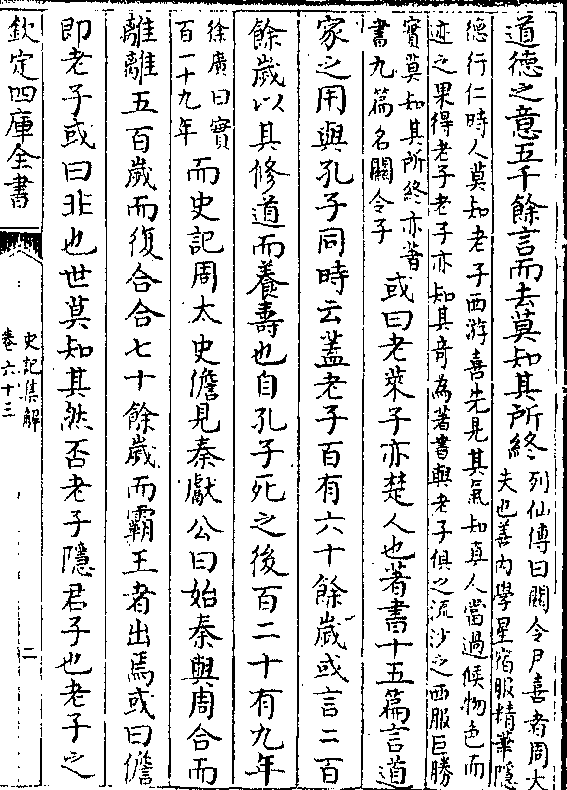 道德之意五千餘言而去莫知其所終列仙傳曰關令尹喜者周大
夫也善內學星宿服精華隱
德行仁時人莫知老子西游喜先見其氣知真人當過候物色而
迹之果得老子老子亦知其奇為著書與老子俱之流沙之西服巨勝
實莫知其所終亦著
書九篇名關令子或曰老萊子亦楚人也著書十五篇言道
家之用與孔子同時云蓋老子百有六十餘歲或言二百
餘歲以其修道而養壽也自孔子死之後百二十有九年
徐廣曰實
百一十九年而史記周太史儋見秦獻公曰始秦與周合而
離離五百歲而復合合七十餘歲而霸王者出焉或曰儋
即老子或曰非也世莫知其然否老子隱君子也老子之
欽定四庫全書
史記集解
卷六十三
二